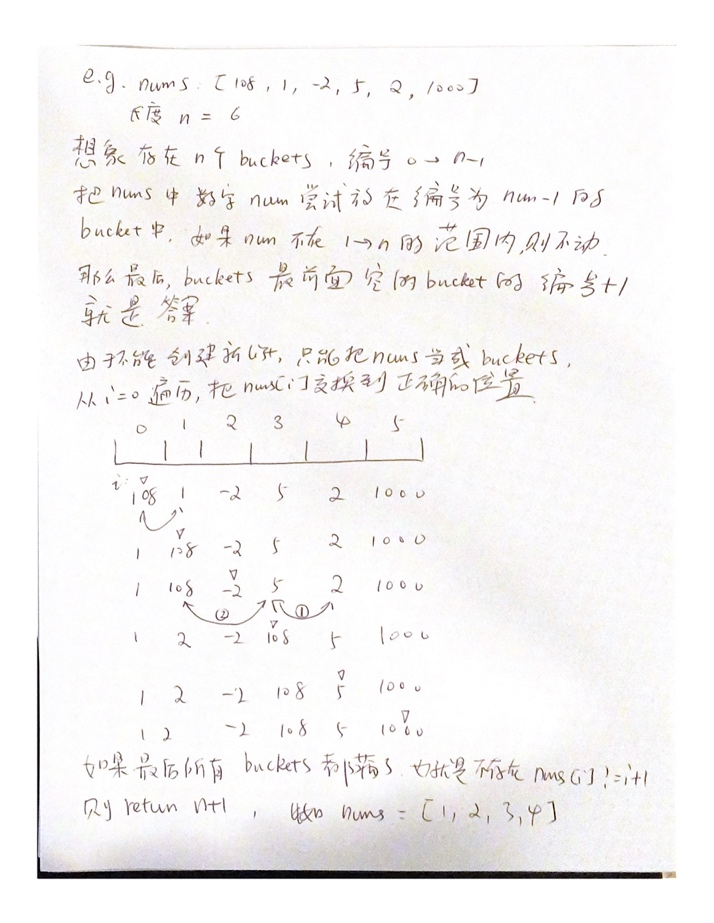 e.g. nums: [108, 1, -2, 5, 2, 1000]
长度 n = 6
想象存在 n个 buckets, 编号 0→n-1
把nums 中 数字 num 尝试放在编号为 num-1 的
bucket中. 如果 num 不在 1→n 的范围内,则不动.
那么最后, buckets 最前面空的bucket的 编号+1
就是 答案.
由于不能创建新list, 只能把nums当成buckets,
从i=0遍历, 把nums[i]交换到正确的位置.
0 1 2 3 4 5
i: 108 1 -2 5 2 1000
1 108 -2 5 2 1000
1 108 -2 5 2 1000
② ①
1 2 -2 108 5 1000
1 2 -2 108 5 1000
1 2 -2 108 5 1000
如果最后所有 buckets 都满了. 也就是不存在 nums[i] != i+1
则 return n+1 , 比如 nums = [1, 2, 3, 4]